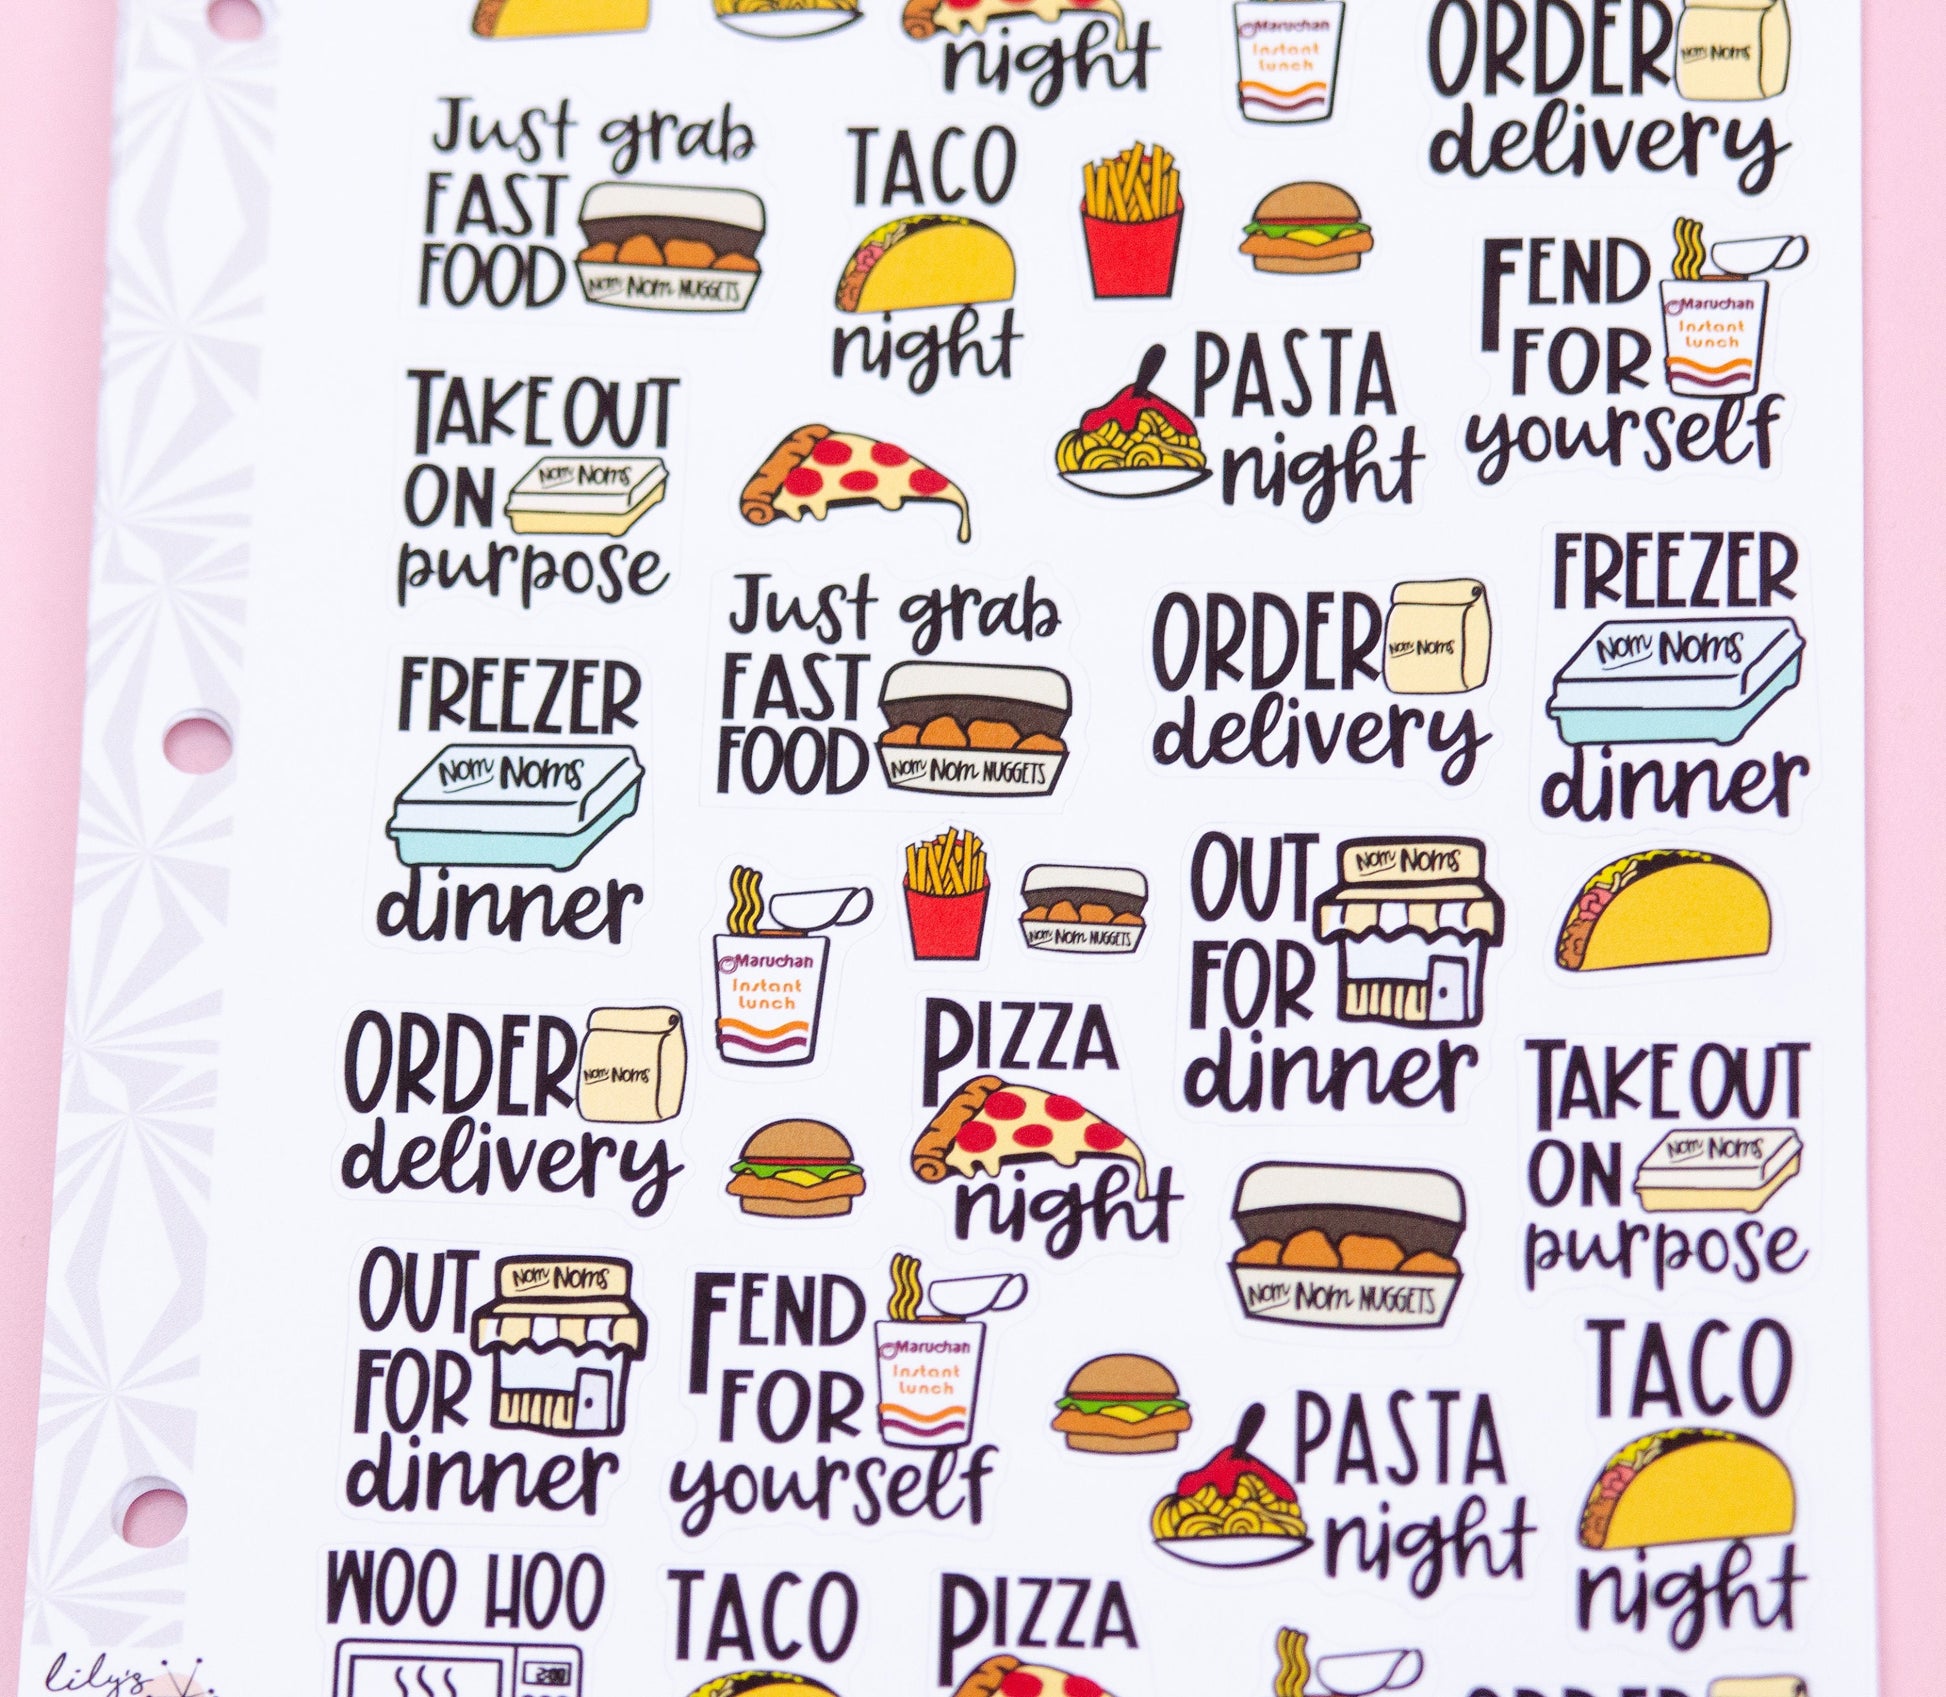 night
Maruchan
Instant
Lunch
ORDER
Nom Noms
delivery
Just grab
FAST
FOOD
Nom Nom NUGGETS
TACO
night
FEND
FOR
Maruchan
Instant
Lunch
yourself
TAKE OUT
ON
Nom Noms
purpose
PASTA
night
Just grab
FAST
FOOD
Nom Nom NUGGETS
ORDER
Nom Noms
delivery
FREEZER
Nom Noms
dinner
FREEZER
Nom Noms
dinner
Maruchan
Instant
Lunch
Nom Nom NUGGETS
OUT
Nom Noms
FOR
dinner
ORDER
Nom Noms
delivery
PIZZA
night
TAKE OUT
ON
Nom Noms
purpose
Nom Nom NUGGETS
OUT
Nom Noms
FOR
dinner
FEND
FOR
Maruchan
Instant
Lunch
yourself
PASTA
night
TACO
night
WOO HOO
TACO
PIZZA
ORDER
lily's